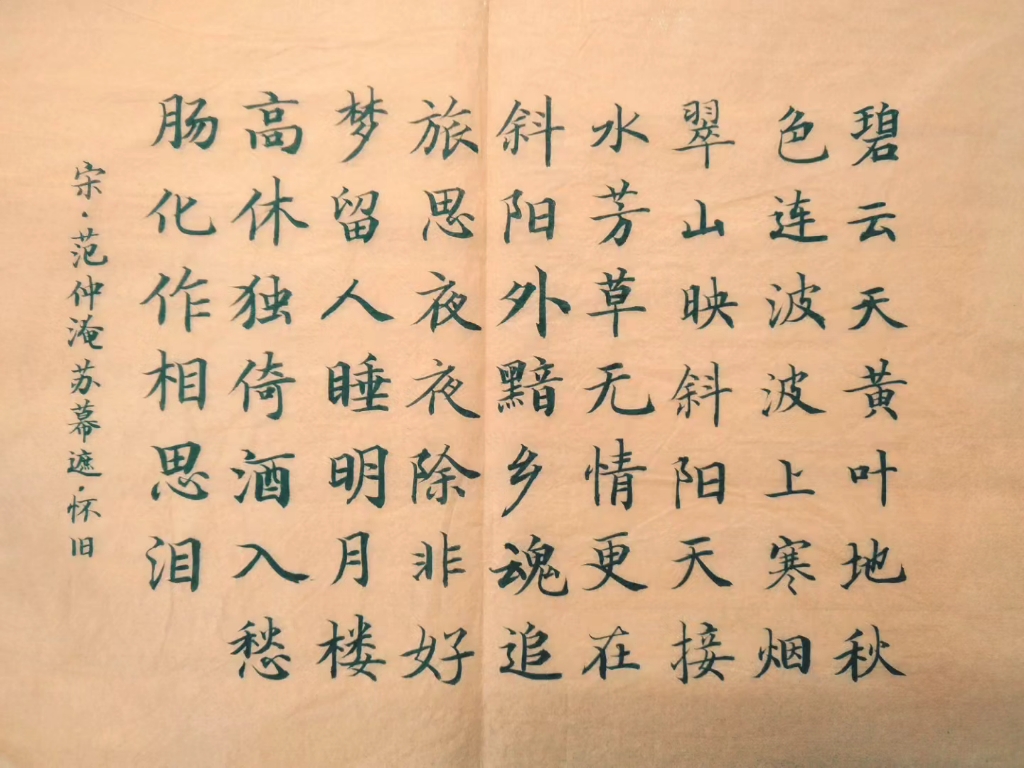 碧云天黄叶地秋
色连波波上寒烟
翠山映斜阳天接
水芳草无情更在
斜阳外黯乡魂追
旅思夜夜除非好
梦留人睡明月楼
高休独倚酒入愁
肠化作相思泪
宋·范仲淹苏幕遮·怀旧